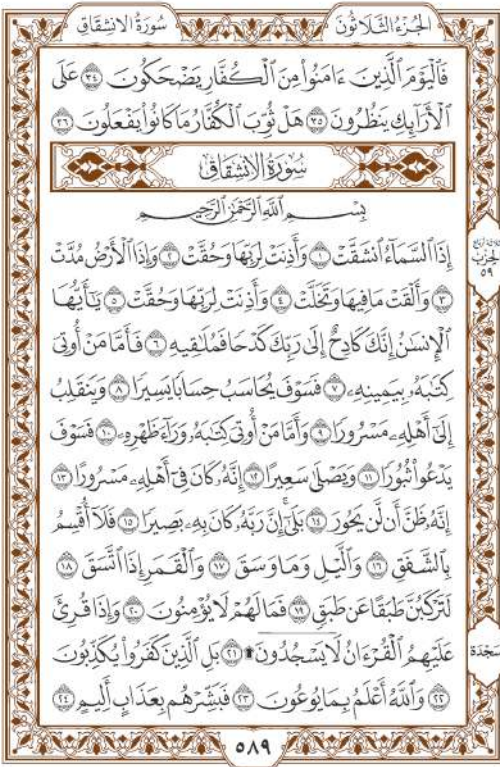 الجُزْءُ الثَّلَاثُونَ سُورَةُ الانشِقَاقِ
فَٱلْيَوْمَ ٱلَّذِينَ ءَامَنُوا۟ مِنَ ٱلْكُفَّارِ يَضْحَكُونَ ٣٤ عَلَى
ٱلْأَرَآئِكِ يَنظُرُونَ ٣٥ هَلْ ثُوِّبَ ٱلْكُفَّارُ مَا كَانُوا۟ يَفْعَلُونَ ٣٦
سُورَةُ الانشِقَاقِ
بِسْمِ ٱللَّهِ ٱلرَّحْمَٰنِ ٱلرَّحِيمِ
إِذَا ٱلسَّمَآءُ ٱنشَقَّتْ ١ وَأَذِنَتْ لِرَبِّهَا وَحُقَّتْ ٢ وَإِذَا ٱلْأَرْضُ مُدَّتْ
الحِزْبُ
٥٩
٣ وَأَلْقَتْ مَا فِيهَا وَتَخَلَّتْ ٤ وَأَذِنَتْ لِرَبِّهَا وَحُقَّتْ ٥ يَٰٓأَيُّهَا
ٱلْإِنسَٰنُ إِنَّكَ كَادِحٌ إِلَىٰ رَبِّكَ كَدْحًا فَمُلَٰقِيهِ ٦ فَأَمَّا مَنْ أُوتِىَ
كِتَٰبَهُۥ بِيَمِينِهِۦ ٧ فَسَوْفَ يُحَاسَبُ حِسَابًا يَسِيرًا ٨ وَيَنقَلِبُ
إِلَىٰٓ أَهْلِهِۦ مَسْرُورًا ٩ وَأَمَّا مَنْ أُوتِىَ كِتَٰبَهُۥ وَرَآءَ ظَهْرِهِۦ ١٠ فَسَوْفَ
يَدْعُوا۟ ثُبُورًا ١١ وَيَصْلَىٰ سَعِيرًا ١٢ إِنَّهُۥ كَانَ فِىٓ أَهْلِهِۦ مَسْرُورًا ١٣
إِنَّهُۥ ظَنَّ أَن لَّن يَحُورَ ١٤ بَلَىٰٓ إِنَّ رَبَّهُۥ كَانَ بِهِۦ بَصِيرًا ١٥ فَلَآ أُقْسِمُ
بِٱلشَّفَقِ ١٦ وَٱلَّيْلِ وَمَا وَسَقَ ١٧ وَٱلْقَمَرِ إِذَا ٱتَّسَقَ ١٨
لَتَرْكَبُنَّ طَبَقًا عَن طَبَقٍ ١٩ فَمَا لَهُمْ لَا يُؤْمِنُونَ ٢٠ وَإِذَا قُرِئَ
عَلَيْهِمُ ٱلْقُرْءَانُ لَا يَسْجُدُونَ ۩ ٢١ بَلِ ٱلَّذِينَ كَفَرُوا۟ يُكَذِّبُونَ
سَجْدَة
٢٢ وَٱللَّهُ أَعْلَمُ بِمَا يُوعُونَ ٢٣ فَبَشِّرْهُم بِعَذَابٍ أَلِيمٍ ٢٤
٥٨٩